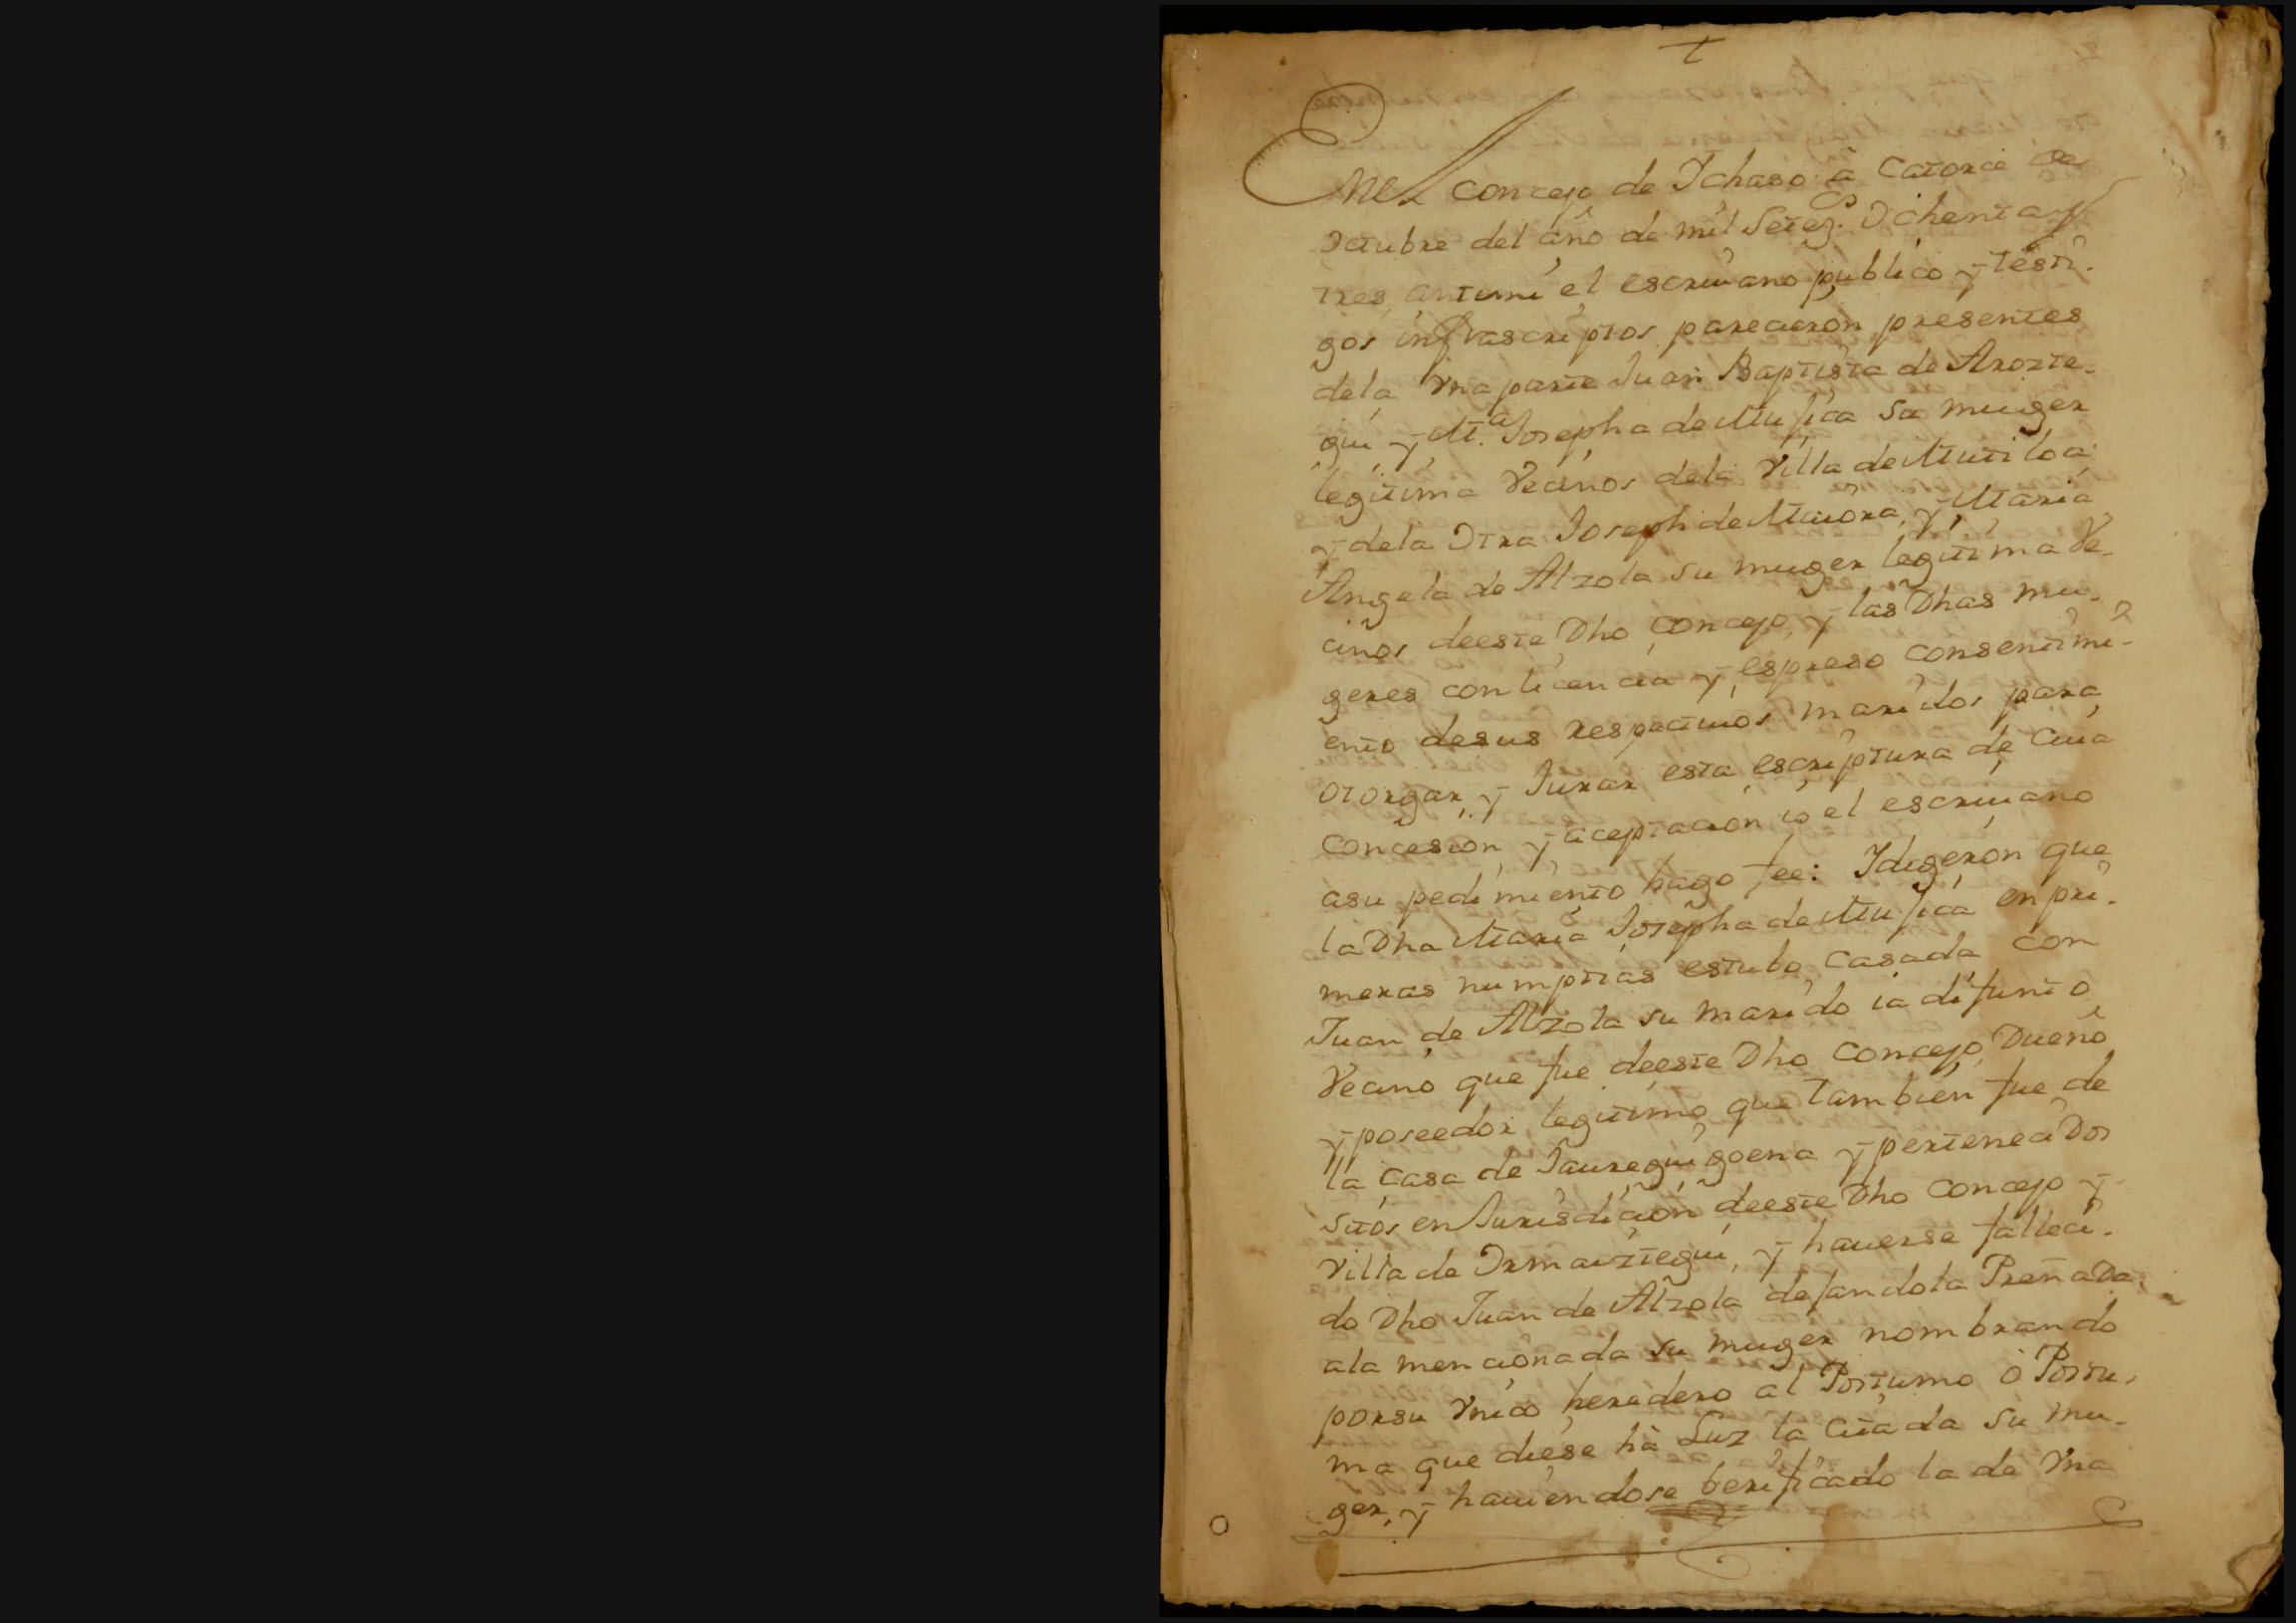 En el concejo de Ichaso â Catorce de
Octubre del año de mil Setez.s Ochenta y
tres, antemi el escriuano publico y testi-
gos infrascriptos parecieron presentes
dela Vna parte Juan Baptista de Arozte-
gui y M.a Josepha de Mujica su muger
legitima Vecinos dela Villa de Mutiloa
y dela Otra Joseph de Maiora, y Maria
Angela de Alzola su muger legitima Ve-
cinos deeste Dho concejo, y las Dhas mu-
geres con licencia y espreso consentimi-
ento desus respectiuos maridos para
otorgar, y Jurar esta escriptura de Cuia
concesion, y aceptacion io el escriuano
asu pedimiento hago fee: Idigeron que
la Dha Maria Josepha de Mujica en pri-
meras numptias estubo casada con
Juan de Alzola su marido ia difunto
Vecino que fue deeste Dho Concejo, Dueño
y poseedor legitimo que tambien fue de
la Casa de Jauregui goena y pertenecidos
sitos en Jurisdicion deeste Dho concejo y
Villa de Ormaiztegui, y hauerse falleci-
do Dho Juan de Alzola dejandola Preñada
ala mencionada su muger nombrando
porsu Vnico heredero al Postumo ò Postu-
ma que diese hà Luz la Citada su mu-
ger, y hauiendose berificado la de Vna